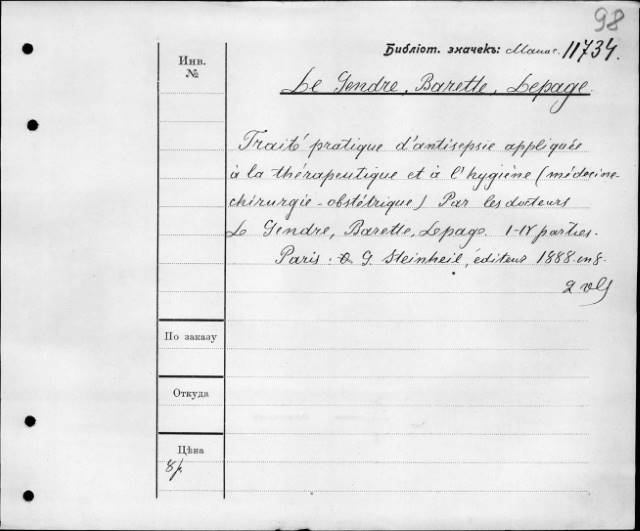 98
Библіот. значекъ: 11734.
Инв.
№
Le Gendre, Barette, Lepage.
Traité pratique d'antisepsie appliquée
à la thérapeutique et à l'hygiène (médecine-
chirurgie-obstétrique) Par les docteurs
Le Gendre, Barette, Lepage. I-IV parties.
Paris. G. Steinheil, éditeur 1888. in 8.
2 vls
По заказу
Откуда
Цѣна
8 р.